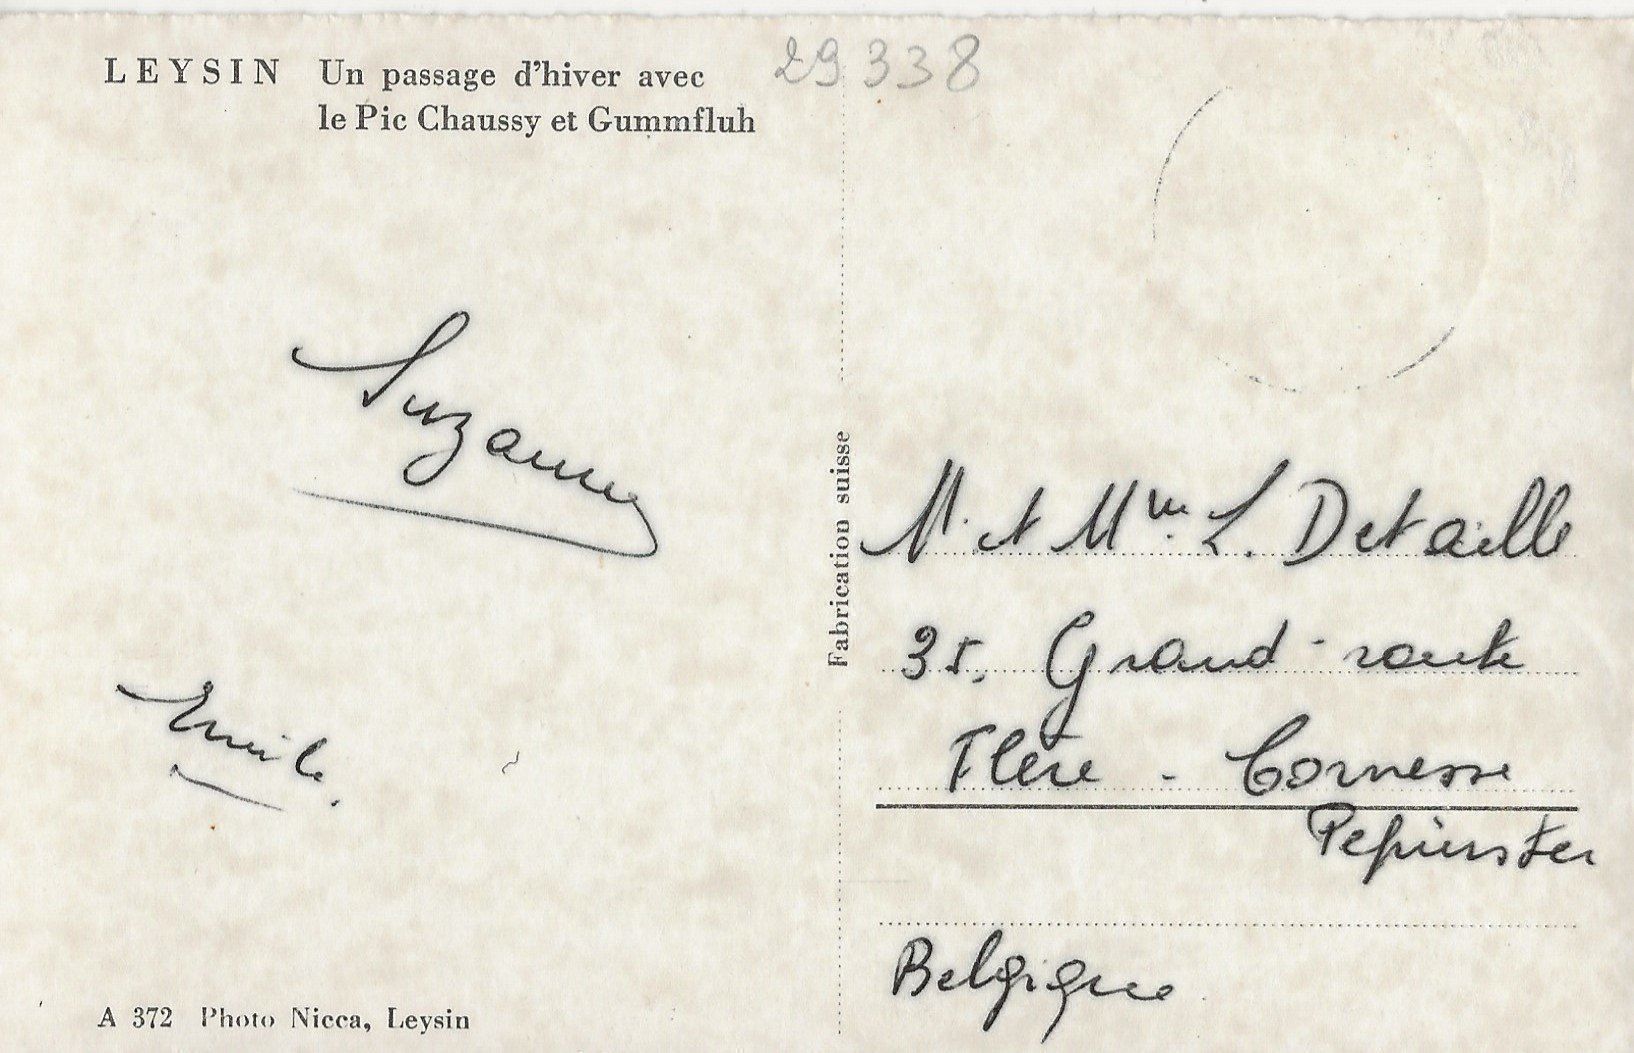 LEYSIN Un passage d'hiver avec
le Pic Chaussy et Gummfluh
29338
Suzanne
Emile.
A 372 Photo Nicca, Leysin
Fabrication suisse
M. et Mme. L. Detaille
35, Grand-route
Flère - Cornesse
Pepinster
Belgique